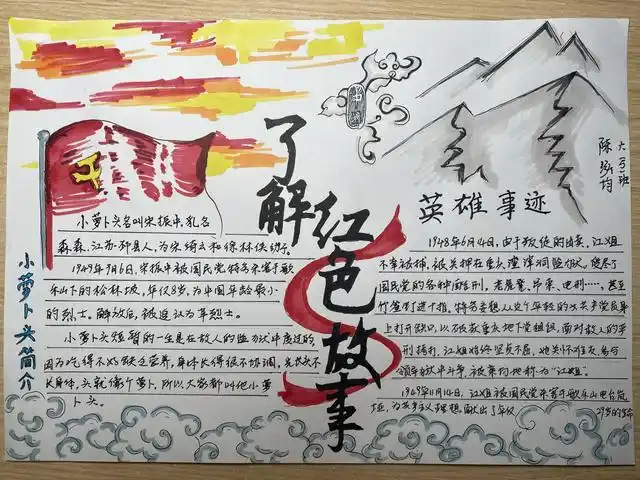 了解
红色故事
英雄事迹
六
班
陈
均
小萝卜头简介
小萝卜头名叫宋振中,乳名
森森,江苏邳县人,为宋绮云和徐林侠幼子。
1949年9月6日,宋振中被国民党特务杀害于歌
乐山下的松林坡,年仅8岁,为中国年龄最小
的烈士。解放后,被追认为革命烈士。
小萝卜头短暂的一生是在敌人的监狱中度过的,
因为吃得不好缺乏营养,身体长得很不协调,光长头不
长身体,头就像个萝卜,所以大家都叫他小萝
卜头。
1948年6月14日,由于叛徒的出卖,江姐
不幸被捕,被关押在重庆渣滓洞监狱。受尽了
国民党的各种酷刑,老虎凳、吊索、电刑……,甚至
竹签钉进十指,特务妄想从这个年轻的女共产党员身
上打开缺口,以破获重庆地下党组织,面对敌人的严
刑拷打,江姐始终坚贞不屈,她关怀难友,
领导狱中斗争,被亲切地称为“江姐”。
1949年11月14日,江姐被国民党杀害于歌乐山电台岚
垭,为共产主义理想献出了年仅
29岁的生命